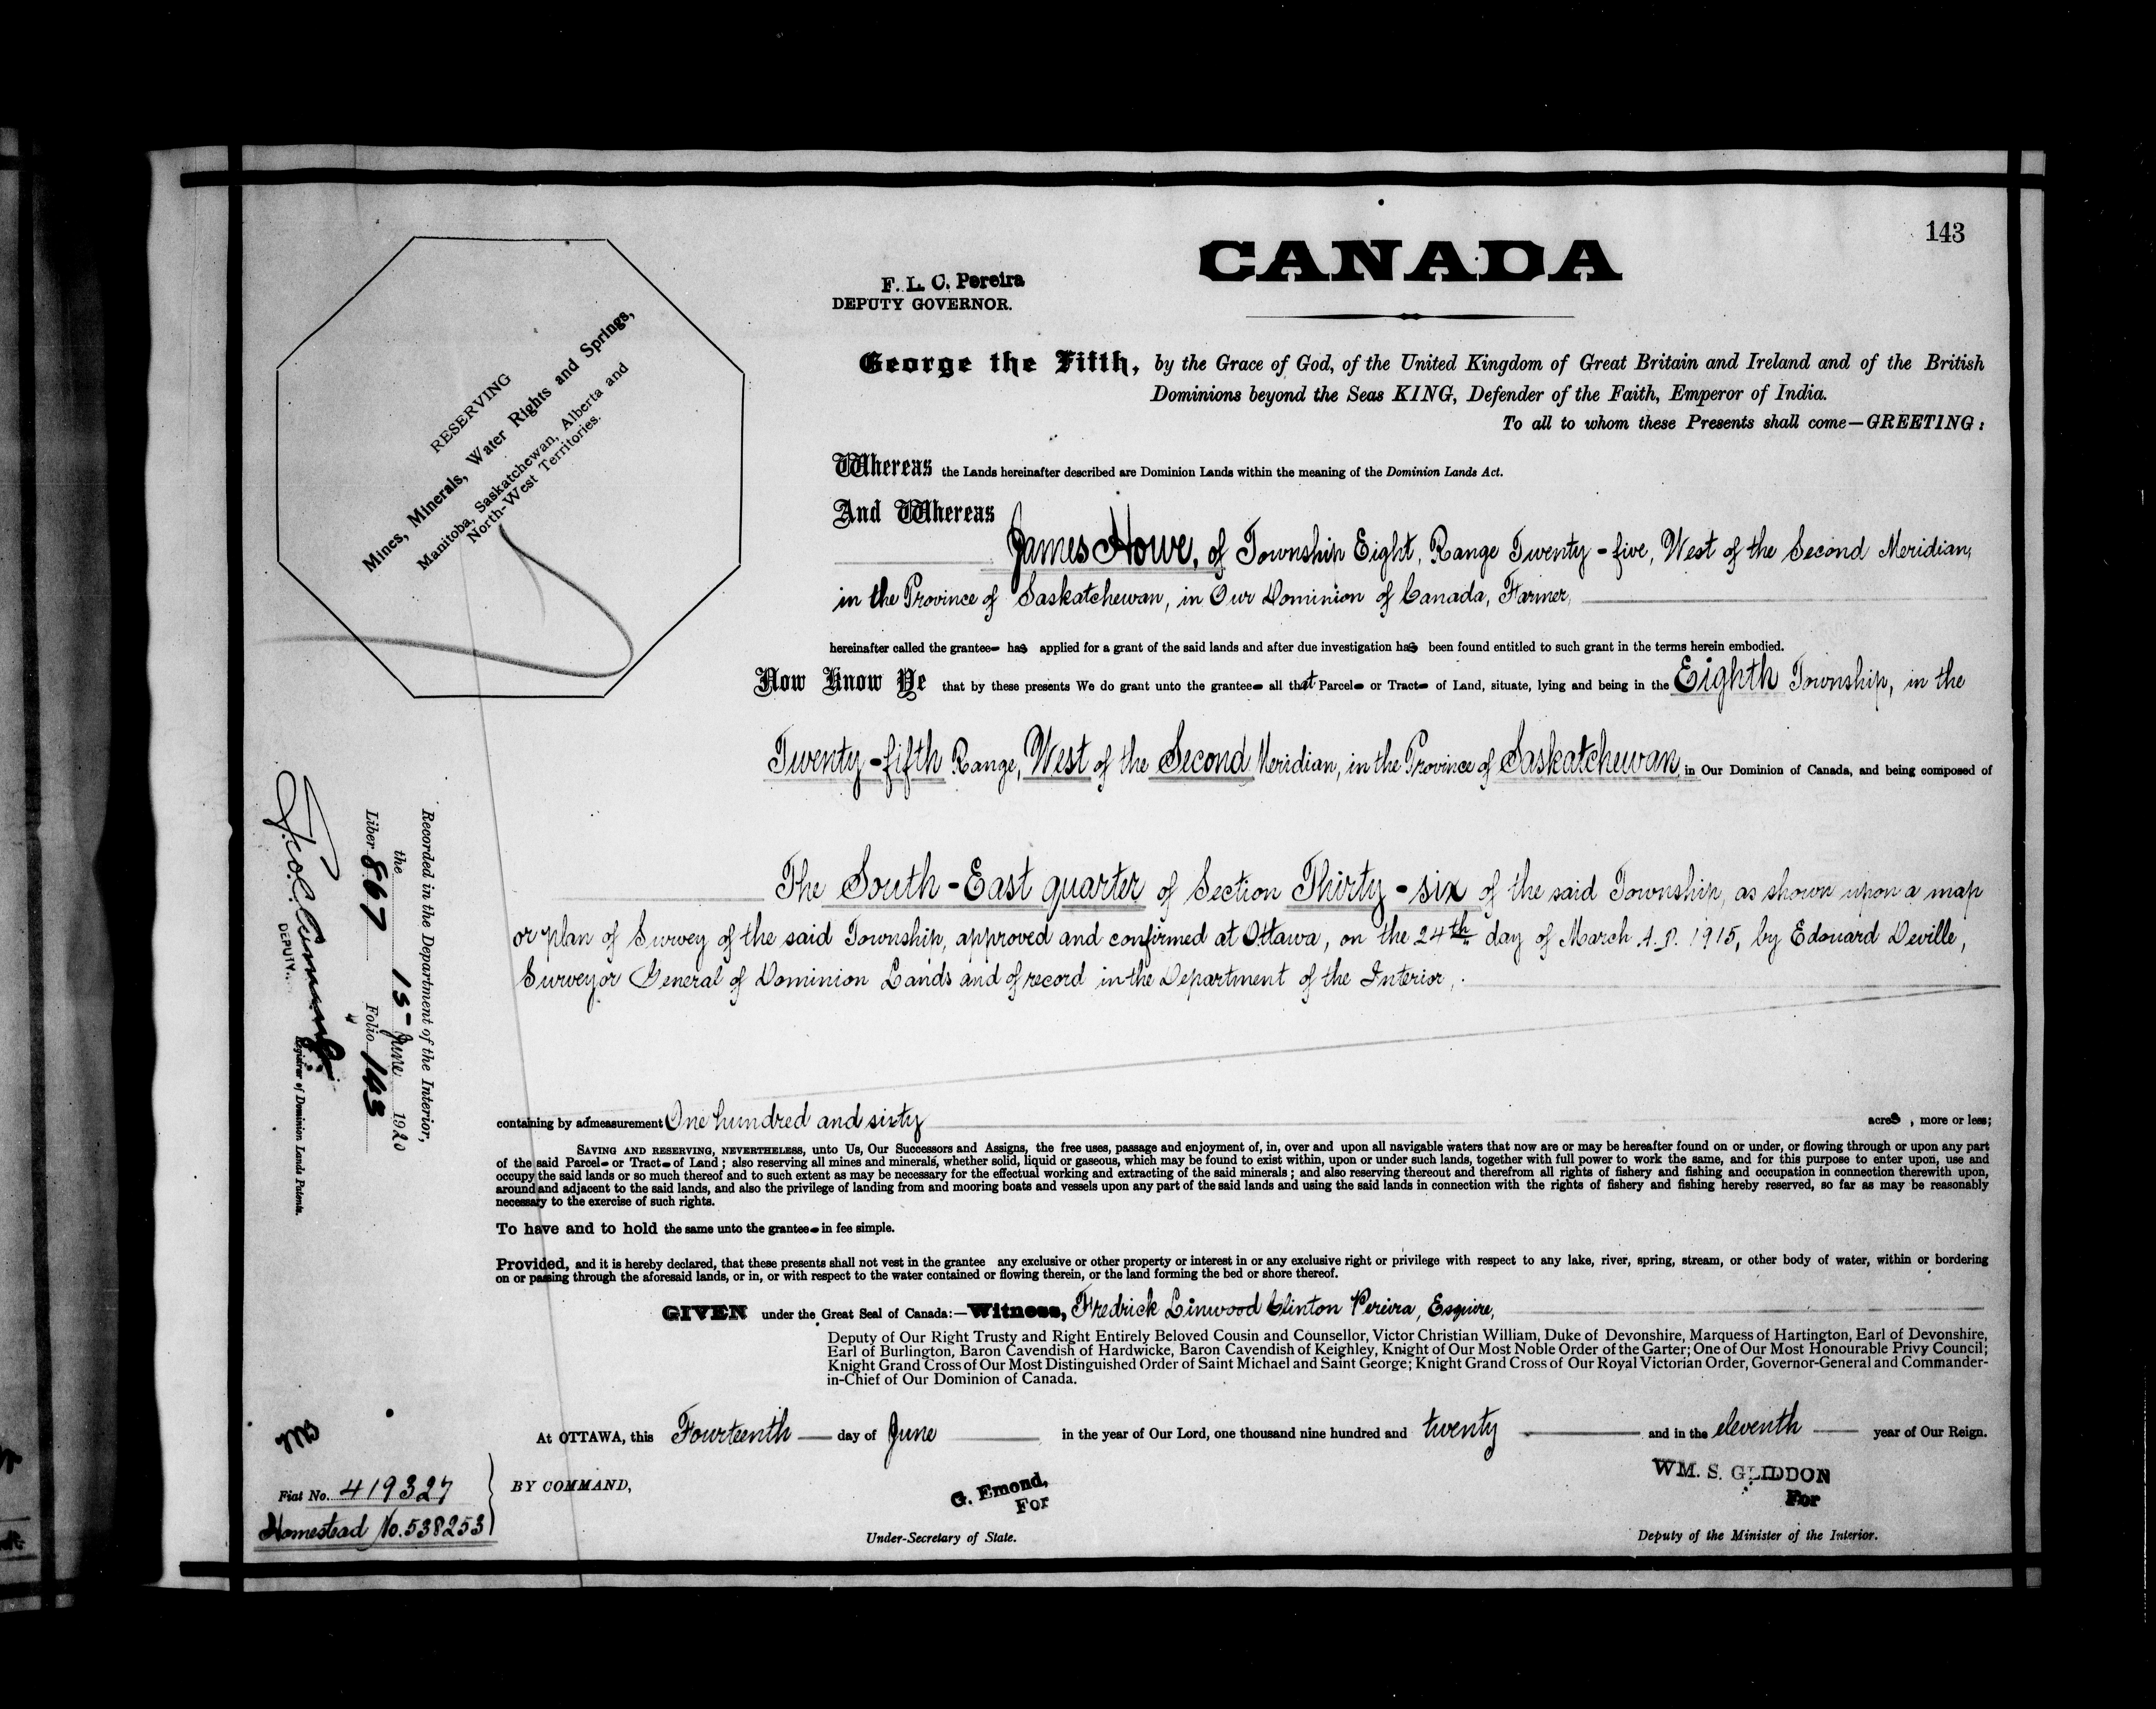 143
CANADA
F. L. C. Pereira
DEPUTY GOVERNOR.
RESERVING
Mines, Minerals, Water Rights and Springs,
Manitoba, Saskatchewan, Alberta and
North-West Territories.
George the Fifth, by the Grace of God, of the United Kingdom of Great Britain and Ireland and of the British
Dominions beyond the Seas KING, Defender of the Faith, Emperor of India.
To all to whom these Presents shall come—GREETING:
Whereas the Lands hereinafter described are Dominion Lands within the meaning of the Dominion Lands Act.
And Whereas
James Howe, of Township Eight, Range Twenty-five, West of the Second Meridian,
in the Province of Saskatchewan, in Our Dominion of Canada, Farmer,
hereinafter called the grantee has applied for a grant of the said lands and after due investigation has been found entitled to such grant in the terms herein embodied.
Now Know Ye that by these presents We do grant unto the grantee all that Parcel or Tract of Land, situate, lying and being in the Eighth Township, in the
Twenty-fifth Range, West of the Second Meridian, in the Province of Saskatchewan in Our Dominion of Canada, and being composed of
The South-East quarter of Section Thirty-six of the said Township, as shown upon a map
or plan of Survey of the said Township, approved and confirmed at Ottawa, on the 24th day of March A.D. 1915, by Edouard Deville,
Surveyor General of Dominion Lands and of record in the Department of the Interior,
containing by admeasurement One hundred and sixty acres, more or less;
SAVING AND RESERVING, NEVERTHELESS, unto Us, Our Successors and Assigns, the free uses, passage and enjoyment of, in, over and upon all navigable waters that now are or may be hereafter found on or under, or flowing through or upon any part
of the said Parcel or Tract of Land; also reserving all mines and minerals, whether solid, liquid or gaseous, which may be found to exist within, upon or under such lands, together with full power to work the same, and for this purpose to enter upon, use and
occupy the said lands or so much thereof and to such extent as may be necessary for the effectual working and extracting of the said minerals; and also reserving thereout and therefrom all rights of fishery and fishing and occupation in connection therewith upon,
around and adjacent to the said lands, and also the privilege of landing from and mooring boats and vessels upon any part of the said lands and using the said lands in connection with the rights of fishery and fishing hereby reserved, so far as may be reasonably
necessary to the exercise of such rights.
To have and to hold the same unto the grantee in fee simple.
Provided, and it is hereby declared, that these presents shall not vest in the grantee any exclusive or other property or interest in or any exclusive right or privilege with respect to any lake, river, spring, stream, or other body of water, within or bordering
on or passing through the aforesaid lands, or in, or with respect to the water contained or flowing therein, or the land forming the bed or shore thereof.
GIVEN under the Great Seal of Canada:—Witness, Fredrick Linwood Clinton Pereira, Esquire,
Deputy of Our Right Trusty and Right Entirely Beloved Cousin and Counsellor, Victor Christian William, Duke of Devonshire, Marquess of Hartington, Earl of Devonshire,
Earl of Burlington, Baron Cavendish of Hardwicke, Baron Cavendish of Keighley, Knight of Our Most Noble Order of the Garter; One of Our Most Honourable Privy Council;
Knight Grand Cross of Our Most Distinguished Order of Saint Michael and Saint George; Knight Grand Cross of Our Royal Victorian Order, Governor-General and Commander-
in-Chief of Our Dominion of Canada.
At OTTAWA, this Fourteenth day of June in the year of Our Lord, one thousand nine hundred and twenty and in the eleventh year of Our Reign.
BY COMMAND,
G. Emond,
For
Under-Secretary of State.
WM. S. GLIDDON
For
Deputy of the Minister of the Interior.
Recorded in the Department of the Interior,
the 15- June 1920
Liber 867 Folio 143
DEPUTY.
Registrar of Dominion Lands Patents.
Fiat No. 419327
Homestead No. 538253